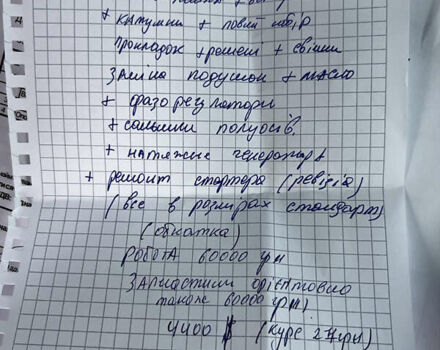 + катушки + повний набір
прокладок + ремені + свічки
заміна подушок + масло
+ фазорегулятори
+ сальники полуосів,
+ натяжне генератора
+ ремонт стартера (ревізія)
(все в розмірах стандарт)
(обкатка)
Робота 60000 грн
Запчастини орієнтовно
також 60000 грн)
4400 $ (курс 27грн)